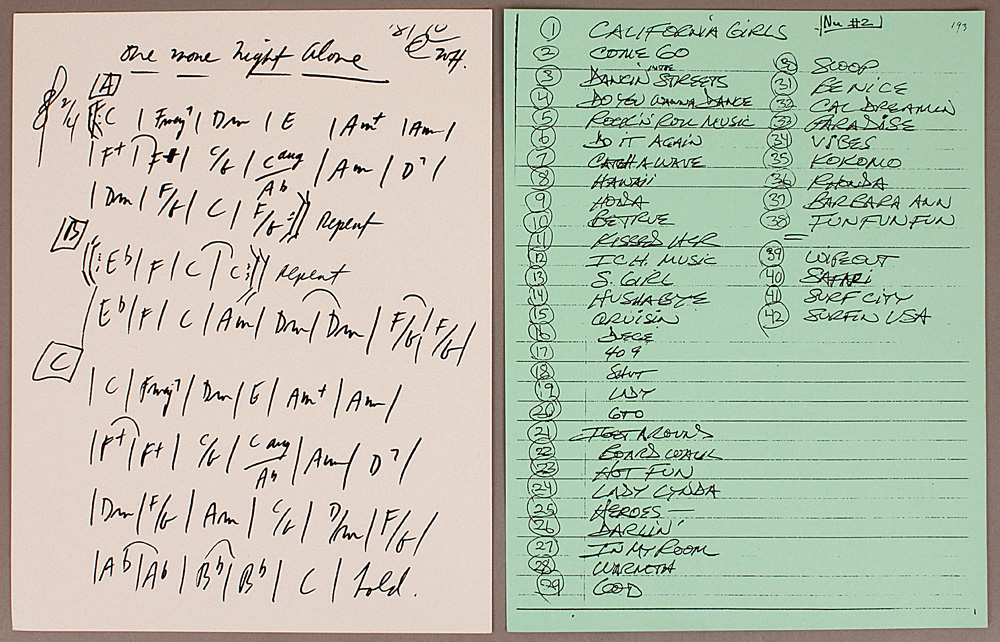 one more night alone
2014
A
2/4 ‖: C | Fmaj7 | Dm | E | Am+ | Am |
| F+ | F+ | C/G | C aug/Ab | Am | D7 |
| Dm | F/G | C | F/G :‖ Repeat
B
‖: Eb | F | C | C :‖ repeat
| Eb | F | C | Am | Dm | Dm | F/G | F/G |
C
| C | Fmaj7 | Dm | E | Am+ | Am |
| F+ | F+ | C/G | C aug/Ab | Am | D7 |
| Dm | F/G | Am | C/G | D/m | F/G |
| Ab | Ab | Bb | Bb | C | Hold.
Nu #2
193
1 CALIFORNIA GIRLS
2 COME GO
3 DANCIN IN THE STREETS
4 DO YOU WANNA DANCE
5 ROCK N' ROLL MUSIC
6 DO IT AGAIN
7 CATCH A WAVE
8 HAWAII
9 HONDA
10 BE TRUE
11 KISSED HER
12 I.C.H. MUSIC
13 S. GIRL
14 HUSHABYE
15 CRUISIN
16 DEUCE
17 409
18 SHUT
19 LADY
20 GTO
21 I GET AROUND
22 BOARDWALK
23 HOT FUN
24 LADY LYNDA
25 HEROES —
26 DARLIN'
27 IN MY ROOM
28 WARMTH
29 GOOD
30 SLOOP
31 BE NICE
32 CAL DREAMIN
33 PARADISE
34 VIBES
35 KOKOMO
36 RHONDA
37 BARBARA ANN
38 FUN FUN FUN
39 WIPEOUT
40 SAFARI
41 SURF CITY
42 SURFIN USA